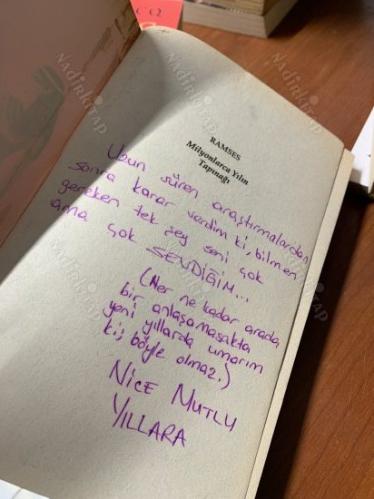 RAMSES
Milyonlarca Yılın
Tapınağı
Uzun süren araştırmalardan
sonra karar verdim ki, bilmen
gereken tek şey seni çok
ama çok SEVDİĞİM...
(Her ne kadar arada
bir anlaşamasakta
yeni yıllarda umarım
hiç böyle olmaz.)
NİCE MUTLU
YILLARA
NADİRKİTAP
NADİRKİTAP
NADİRKİTAP
NADİRKİTAP